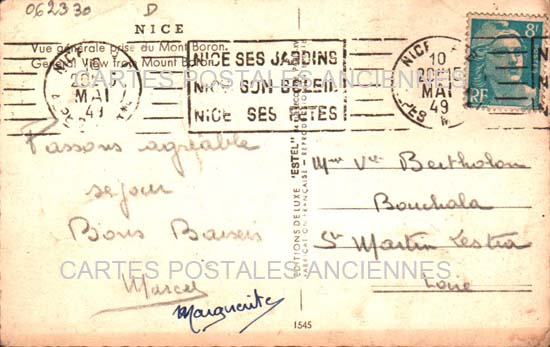 062330 D
NICE
Vue générale prise du Mont Boron.
General View from Mount Boron.
NICE
10
MAI
49
NICE SES JARDINS
NICE SON SOLEIL
NICE SES FÊTES
NICE
10
20H15
MAI
49
8F
RF
CARTES POSTALES ANCIENNES
Passons agréable
séjour
Bons Baisers
Marcel
Marguerite
EDITIONS DE LUXE "ESTEL"
FABRICATION FRANÇAISE - REPRODUCTION
1545
Mme Vve Bertholon
Bouchala
St Martin Lestra
Loire
CARTES POSTALES ANCIENNES